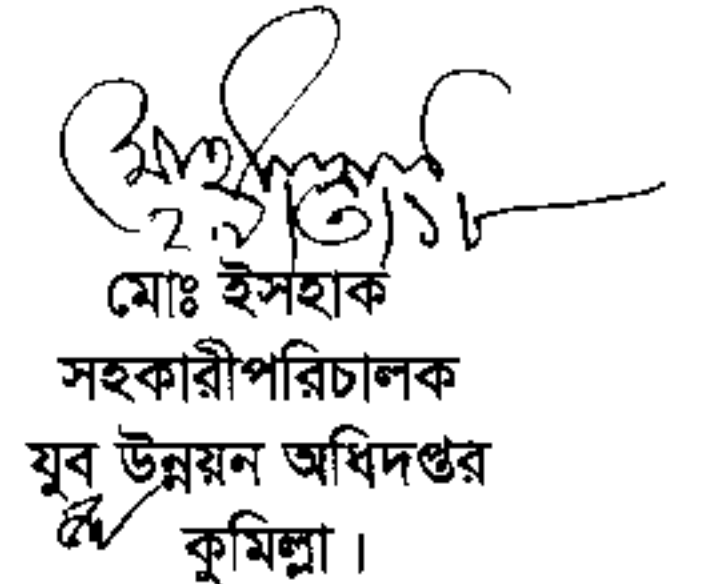 মোঃ ইসহাক
সহকারীপরিচালক
যুব উন্নয়ন অধিদপ্তর
কুমিল্লা ।